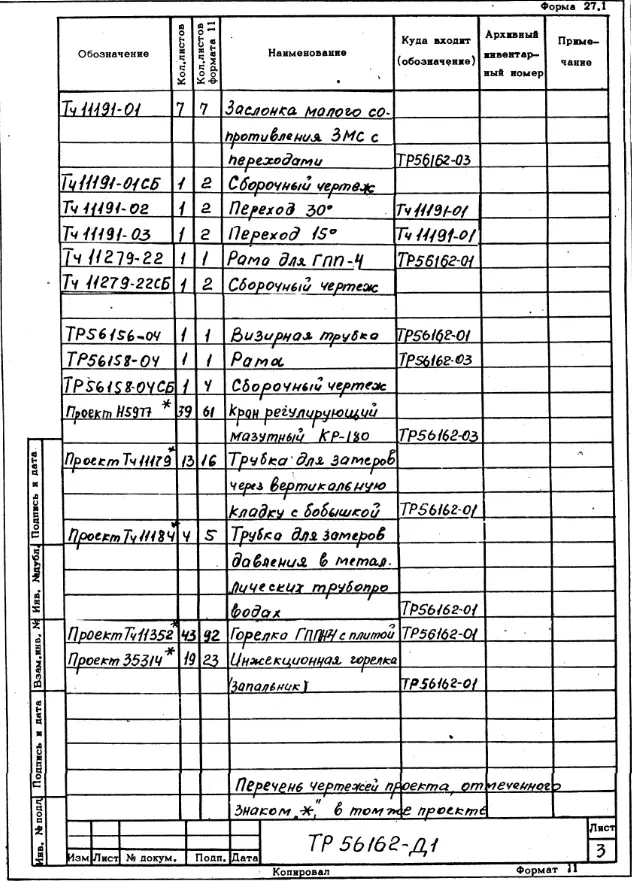 Форма 27.1
Обозначение Кол.листов Кол.листов формата 11 Наименование Куда входит (обозначение) Архивный инвентарный номер Примечание
Тч 11191-01 7 7 Заслонка малого со-
противления ЗМС с
переходами ТР56162-03
Тч11191-01СБ 1 2 Сборочный чертеж
Тч 11191-02 1 2 Переход 30° Тч 11191-01
Тч 11191-03 1 2 Переход 15° Тч 11191-01
Тч 11279-22 1 1 Рама для ГПП-4 ТР56162-01
Тч 11279-22СБ 1 2 Сборочный чертеж
ТР56156-04 1 1 Визирная трубка ТР56162-01
ТР56158-04 1 1 Рама ТР56162-03
ТР56158-04СБ 1 4 Сборочный чертеж
Проект Н5977 * 39 61 Кран регулирующий
мазутный КР-180 ТР56162-03
Проект Тч11179 * 13 16 Трубка для замеров
через вертикальную
кладку с бобышкой ТР56162-01
Проект Тч11184 * 4 5 Трубка для замеров
давления в метал.
лических трубопро
водах ТР56162-01
Проект Тч11352 * 43 92 Горелка с плитой ТР56162-01
Проект 35314 * 19 23 Инжекционная горелка
/запальник/ ТР56162-01
Перечень чертежей проекта, отмеченного
знаком „*", в том же проекте
Подпись и дата
Инв. № дубл.
Взам.инв. №
Подпись и дата
Инв. № подл.
Изм Лист № докум. Подп. Дата
ТР 56162-Д1
Лист
3
Копировал Формат 11